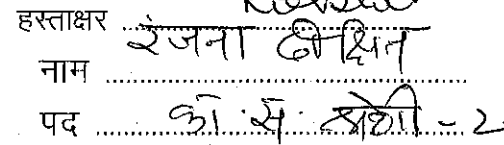 हस्ताक्षर
नाम रंजना दीक्षित
पद का. स. श्रेणी - 2